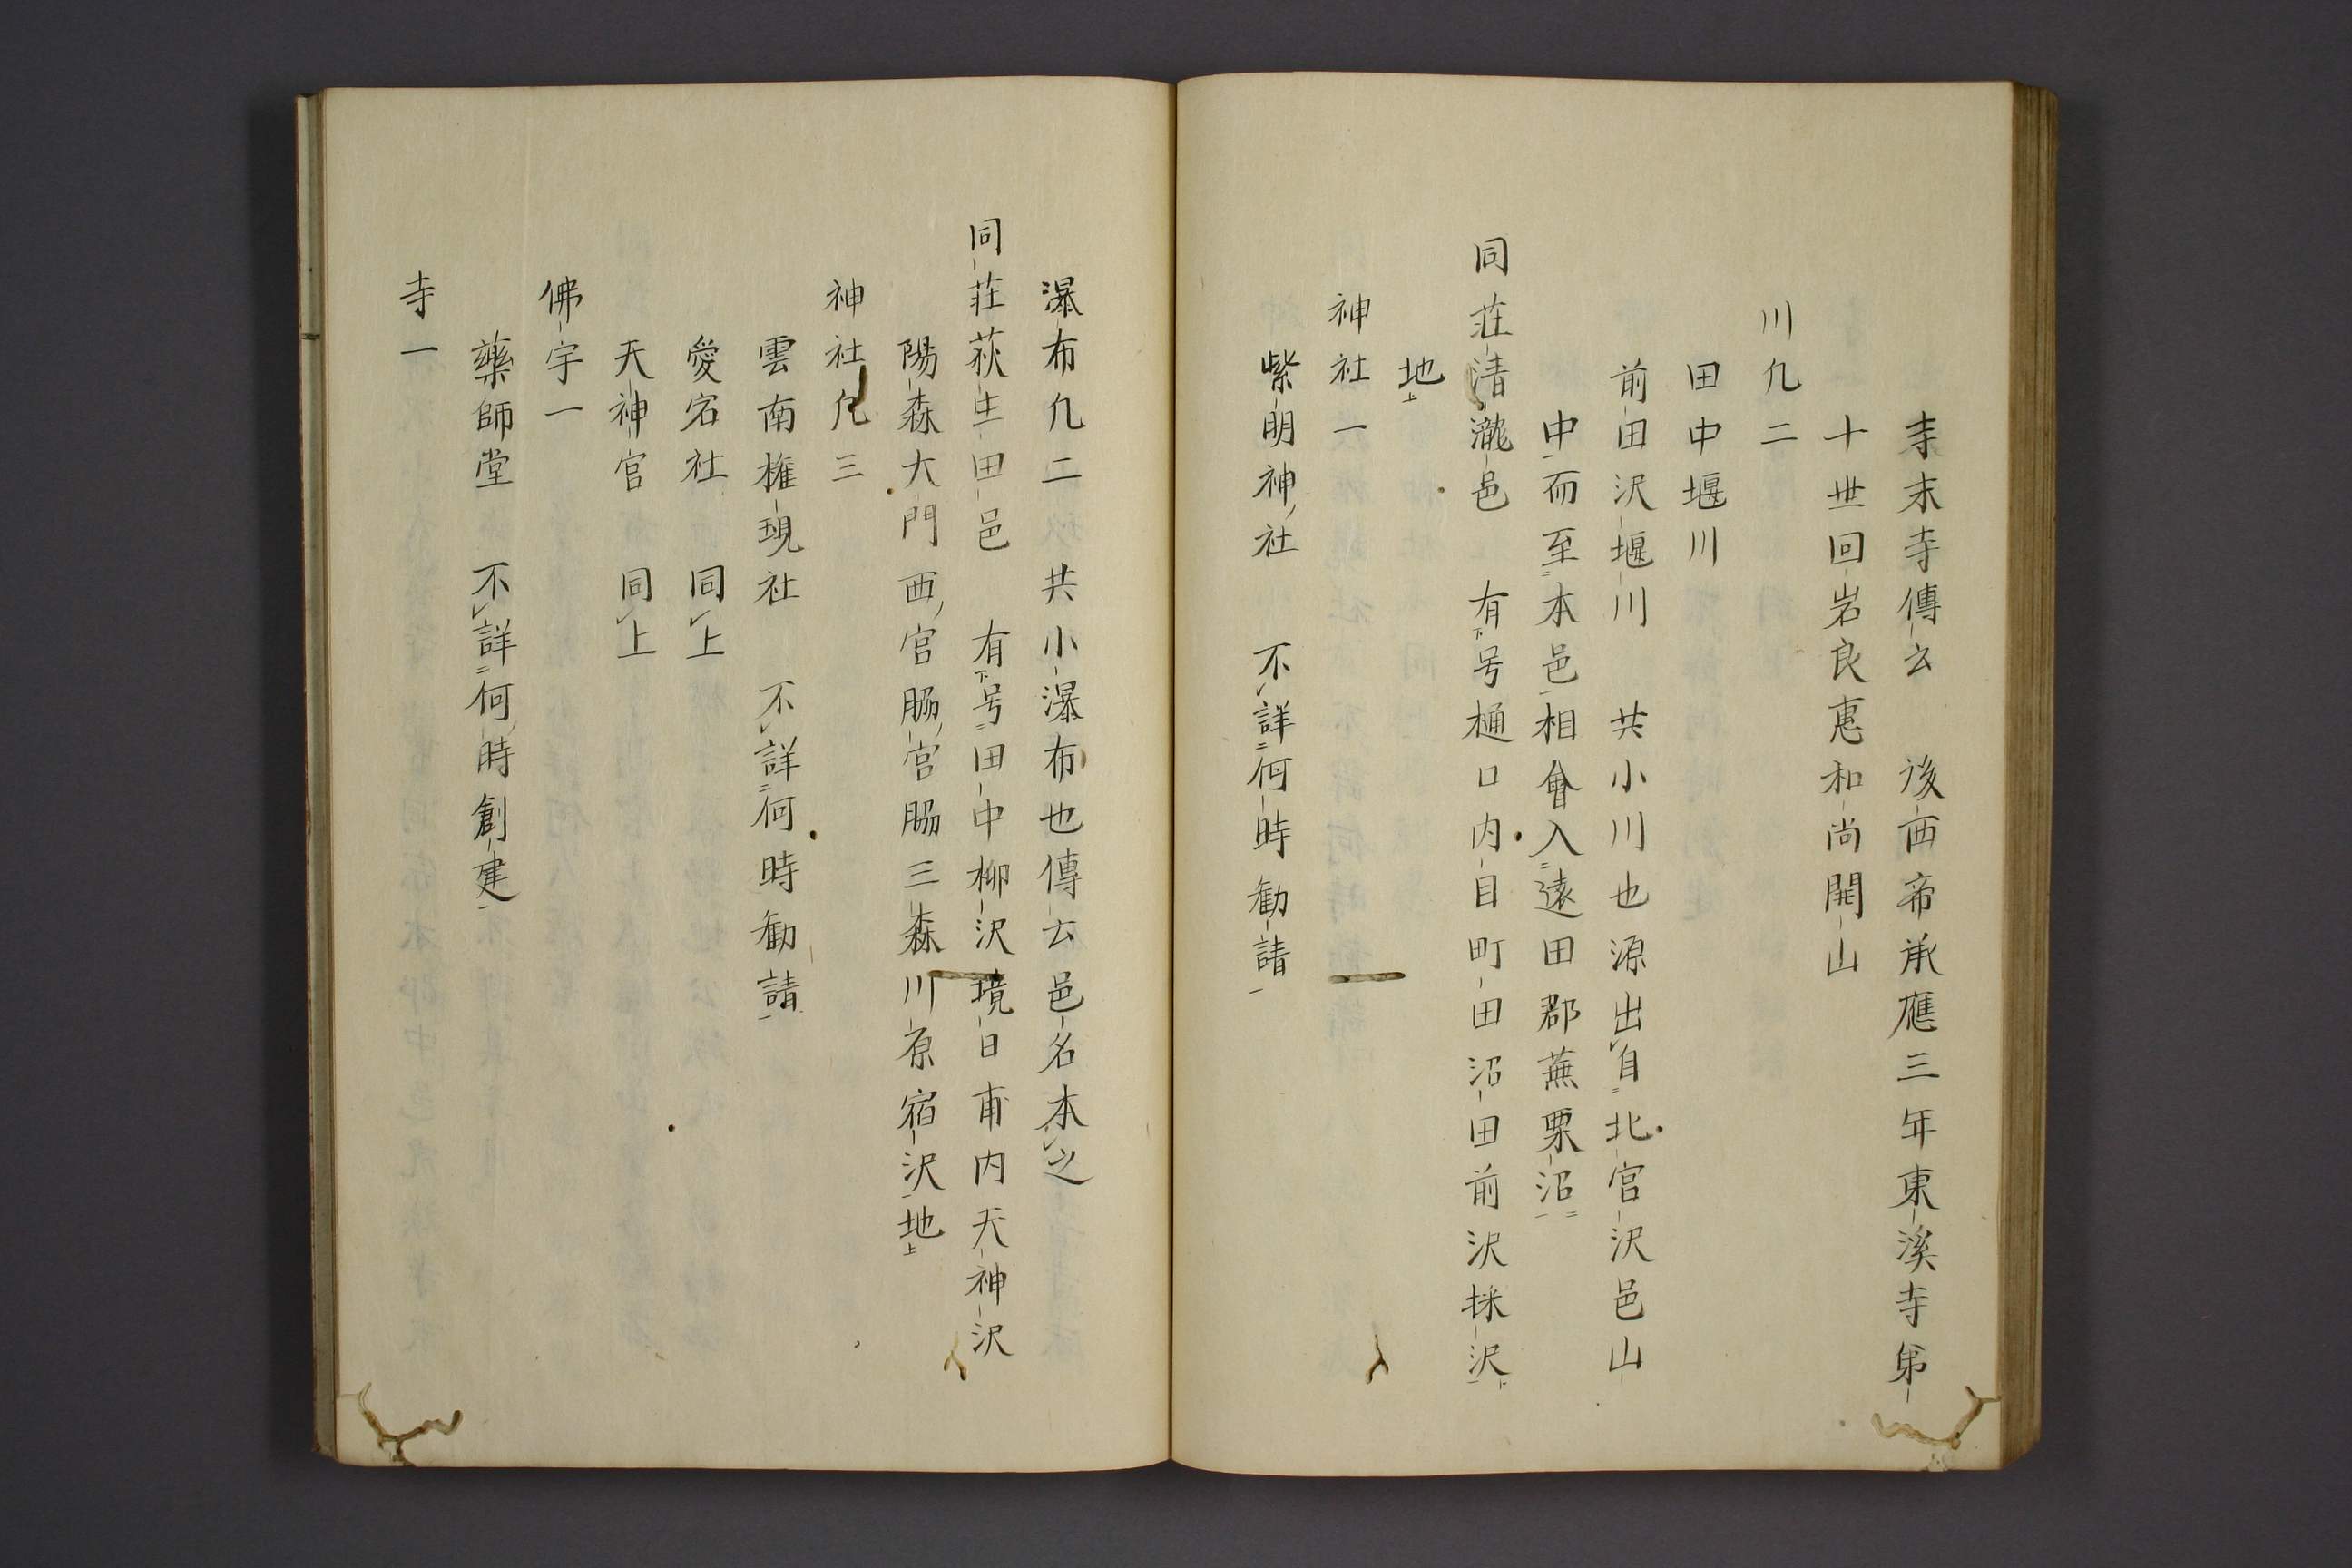 寺末寺傳云　後西帝承應三年東溪寺第
十世回岩良惠和尚開山
川凢二
田中堰川
前田沢堰川　共小川也源出自北宮沢邑山
中而至本邑相會入遠田郡蕪栗沼
同荘清瀧邑　有号樋口内目町田沼田前沢採沢
地
神社一
紫明神社　不詳何時勧請
瀑布凢二　共小瀑布也傳云邑名本之
同荘荻生田邑　有号田中柳沢境日甫内天神沢
陽森大門西宮脇宮脇三森川原宿沢地
神社凢三
雲南権現社　不詳何時勧請
愛宕社　同上
天神宮　同上
佛宇一
藥師堂　不詳何時創建
寺一